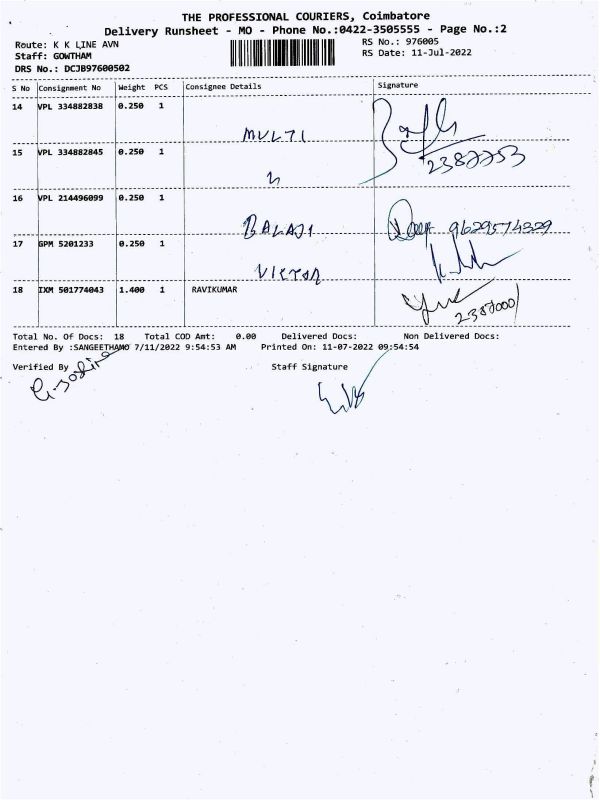 THE PROFESSIONAL COURIERS, Coimbatore
Delivery Runsheet - MO - Phone No.:0422-3505555 - Page No.:2
Route: K K LINE AVN
RS No.: 976005
Staff: GOWTHAM
RS Date: 11-Jul-2022
DRS No.: DCJB97600502
S No Consignment No Weight PCS Consignee Details Signature
14 VPL 334882838 0.250 1
MULTI
15 VPL 334882845 0.250 1
2387253
16 VPL 214496099 0.250 1
BALAJI 9629574329
17 GPM 5201233 0.250 1
VICTOR
18 IXM 501774043 1.400 1 RAVIKUMAR
2387000
Total No. Of Docs: 18 Total COD Amt: 0.00 Delivered Docs: Non Delivered Docs:
Entered By :SANGEETHAMO 7/11/2022 9:54:53 AM Printed On: 11-07-2022 09:54:54
Verified By Staff Signature